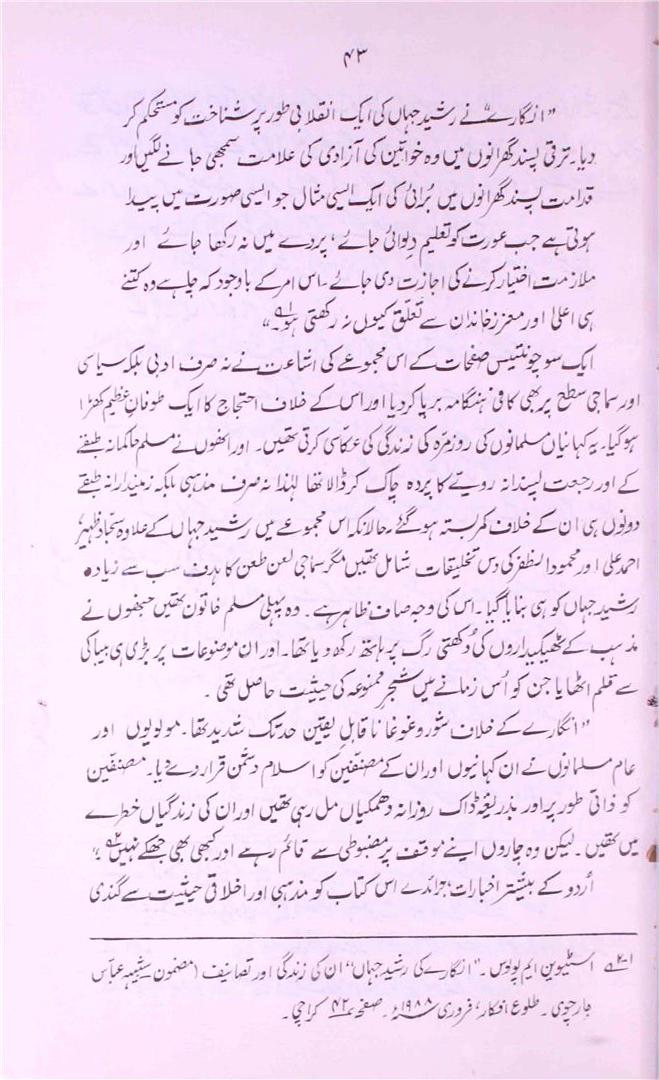 ۴۳
"انگارے" نے رشید جہاں کی ایک انقلابی طور پر شناخت کو مستحکم کر
دیا۔ ترقی پسند گھرانوں میں وہ خواتین کی آزادی کی علامت سمجھی جانے لگیں اور
قدامت پسند گھرانوں میں بُرائی کی ایک ایسی مثال جو ایسی صورت میں پیدا
ہوتی ہے جب عورت کو تعلیم دِلوائی جائے، پردے میں نہ رکھا جائے اور
ملازمت اختیار کرنے کی اجازت دی جائے۔ اس امر کے باوجود کہ چاہے وہ کتنے
ہی اعلیٰ اور معزز خاندان سے تعلّق کیوں نہ رکھتی ہو۔۱"
ایک سو چونتیس صفحات کے اس مجموعے کی اشاعت نے نہ صرف ادبی بلکہ سیاسی
اور سماجی سطح پر بھی کافی ہنگامہ برپا کردیا اور اس کے خلاف احتجاج کا ایک طوفانِ عظیم کھڑا
ہوگیا۔ یہ کہانیاں مسلمانوں کی روزمرّہ کی زندگی کی عکّاسی کرتی تھیں۔ اور انھوں نے مسلم حاکمانہ طبقے
کے اور رجعت پسندانہ رویّے کا پردہ چاک کر ڈالا تھا لہٰذا نہ صرف مذہبی بلکہ زمیندارانہ طبقے
دونوں ہی ان کے خلاف کمر بستہ ہو گئے۔ حالانکہ اس مجموعے میں رشید جہاں کے علاوہ سجّاد ظہیر،
احمد علی اور محمود الظفر کی دس تخلیقات شامل تھیں مگر سماجی لعن طعن کا ہدف سب سے زیادہ
رشید جہاں کو ہی بنایا گیا۔ اس کی وجہ صاف ظاہر ہے۔ وہ پہلی مسلم خاتون تھیں جنھوں نے
مذہب کے ٹھیکیداروں کی دُکھتی رگ پر ہاتھ رکھ دیا تھا۔ اور ان موضوعات پر بڑی ہی بیباکی
سے قلم اٹھایا جن کو اُس زمانے میں شجرِ ممنوعہ کی حیثیت حاصل تھی۔
"انگارے کے خلاف شور و غوغا ناقابلِ یقین حد تک شدید تھا۔ مولویوں اور
عام مسلمانوں نے ان کہانیوں اور ان کے مصنفین کو اسلام دشمن قرار دے دیا۔ مصنّفین
کو ذاتی طور پر اور بذریعۂ ڈاک روزانہ دھمکیاں مل رہی تھیں اور ان کی زندگیاں خطرے
میں تھیں۔ لیکن وہ چاروں اپنے موقف پر مضبوطی سے قائم رہے اور کبھی بھی جھکے نہیں۲"
اُردو کے بیشتر اخبارات، جرائد نے اس کتاب کو مذہبی اور اخلاقی حیثیت سے گندی
۱-۲ اسٹیوین ایم پولوس۔ "انگارے کی رشید جہاں" ان کی زندگی اور تصانیف (مضمون
جارچوی۔ طلوع افکار، فروری ۱۹۸۸ء۔ صفحہ ۴۲ کراچی۔